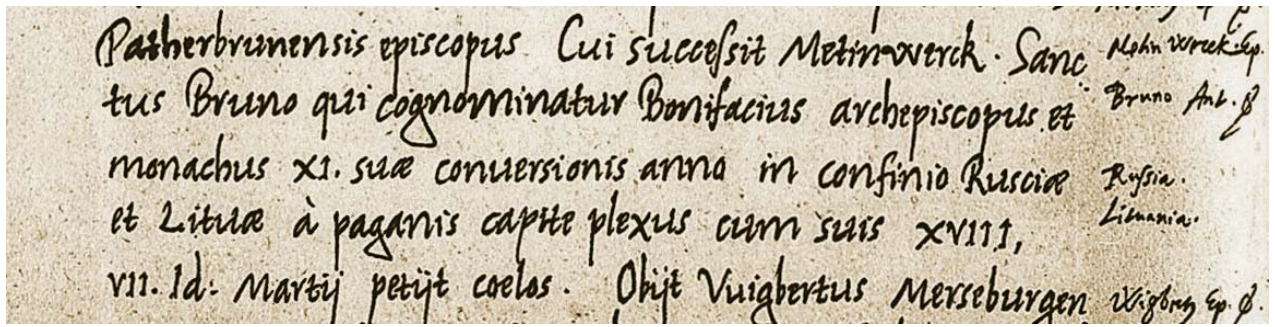 Patherbrunensis episcopus Cui successit Metinwerck. Sanc
tus Bruno qui cognominatur Bonifacius archepiscopus et
monachus XI. suæ conuersionis anno in confinio Rusciæ
et Lituæ à paganis capite plexus cum suis XVIII,
VII. Id: Martij petijt coelos. Obijt Vuigbertus Merseburgen
Ep.
Bruno
Russia.
Lituania.
Ep.